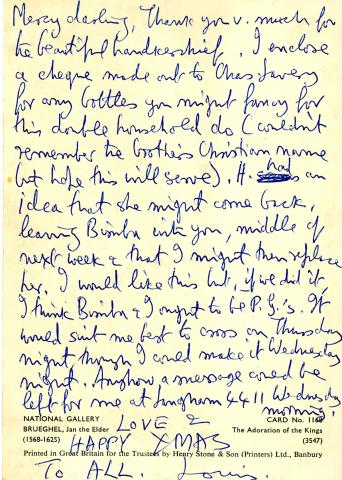 Mercy darling, Thank you v. much for
the beautiful handkerchief. I enclose
a cheque made out to Chas Lavery
for any bottles you might fancy for
this double household do (couldn't
remember the brother's Christian name
but hope this will serve). H. has an
idea that she might come back,
leaving Bimba with you, middle of
next week & that I might then replace
her. I would like this but, if we did it,
I think Bimba & I ought to be P.G.'s. It
would suit me best to cross on Thursday
night though I could make it Wednesday
night. Anyhow a message could be
left for me at Langham 4411 Wednesday
morning.
NATIONAL GALLERY CARD No. 1168
BRUEGHEL, Jan the Elder The Adoration of the Kings
(1568-1625) (3547)
LOVE &
HAPPY XMAS
Printed in Great Britain for the Trustees by Henry Stone & Son (Printers) Ltd., Banbury
TO ALL. Louis.